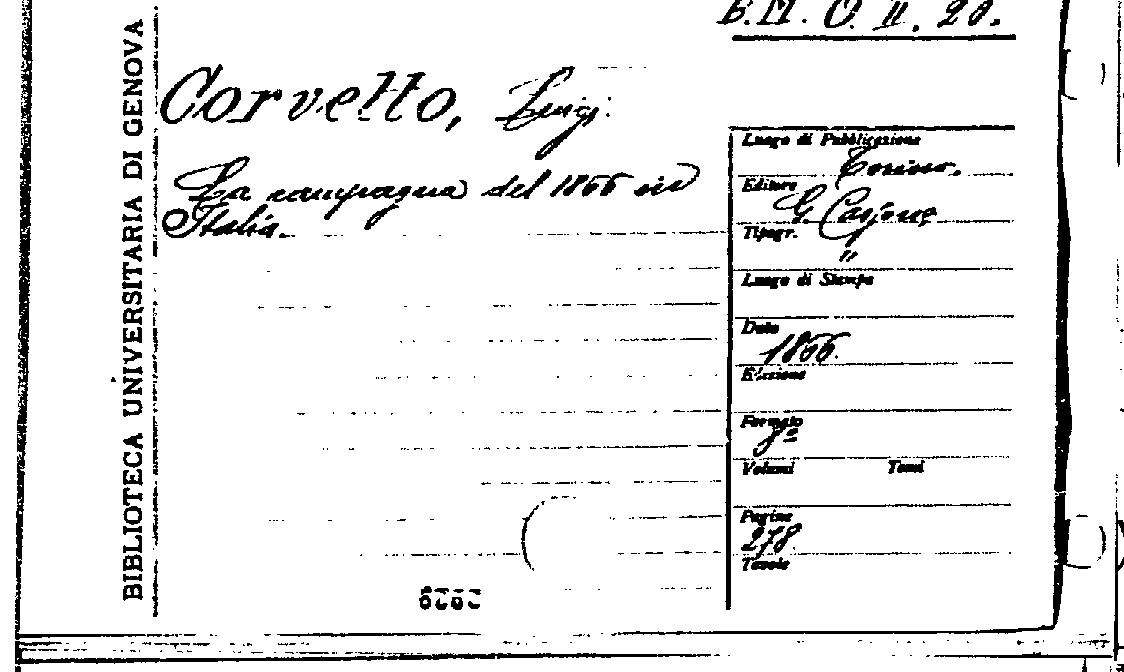 B.M. O. II. 20.
BIBLIOTECA UNIVERSITARIA DI GENOVA
Corvetto, Luigi.
La campagna del 1866 in
Italia.
Luogo di Pubblicazione
Torino.
Editore
G. Cassone
Tipogr.
"
Luogo di Stampa
Data
1866.
Edizione
Formato
8º
Volumi Tomi
Pagine
278
Tavole